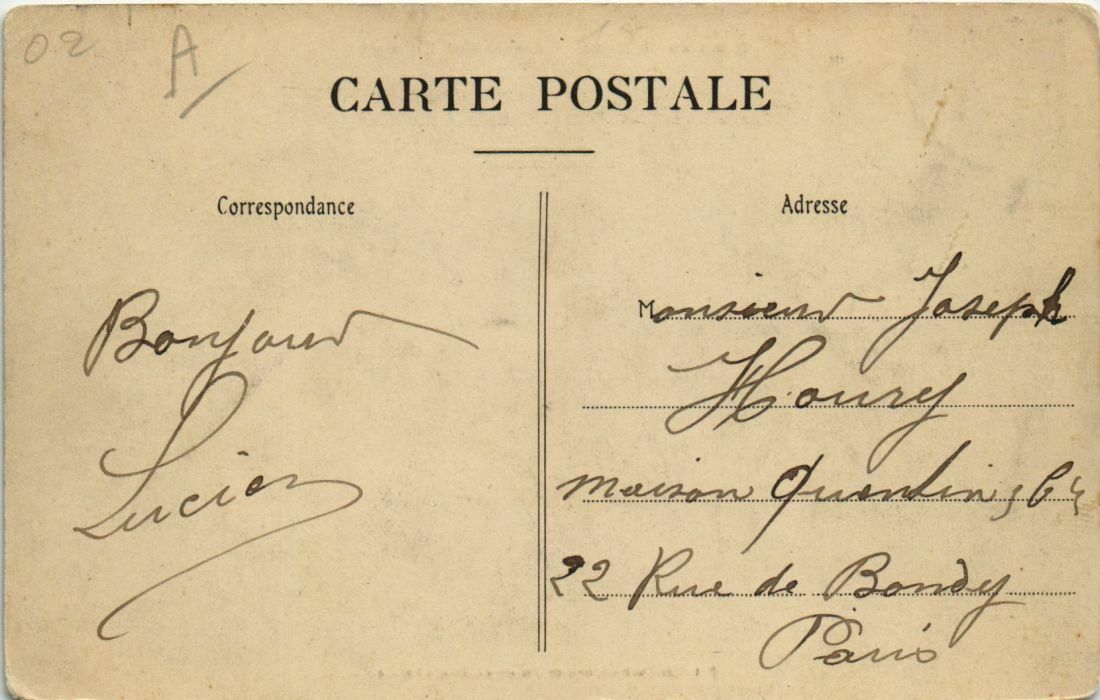 02 A
CARTE POSTALE
Correspondance
Bonjour
Lucien
Adresse
Monsieur Joseph
Houry
maison Quentin
22 Rue de Bondy
Paris